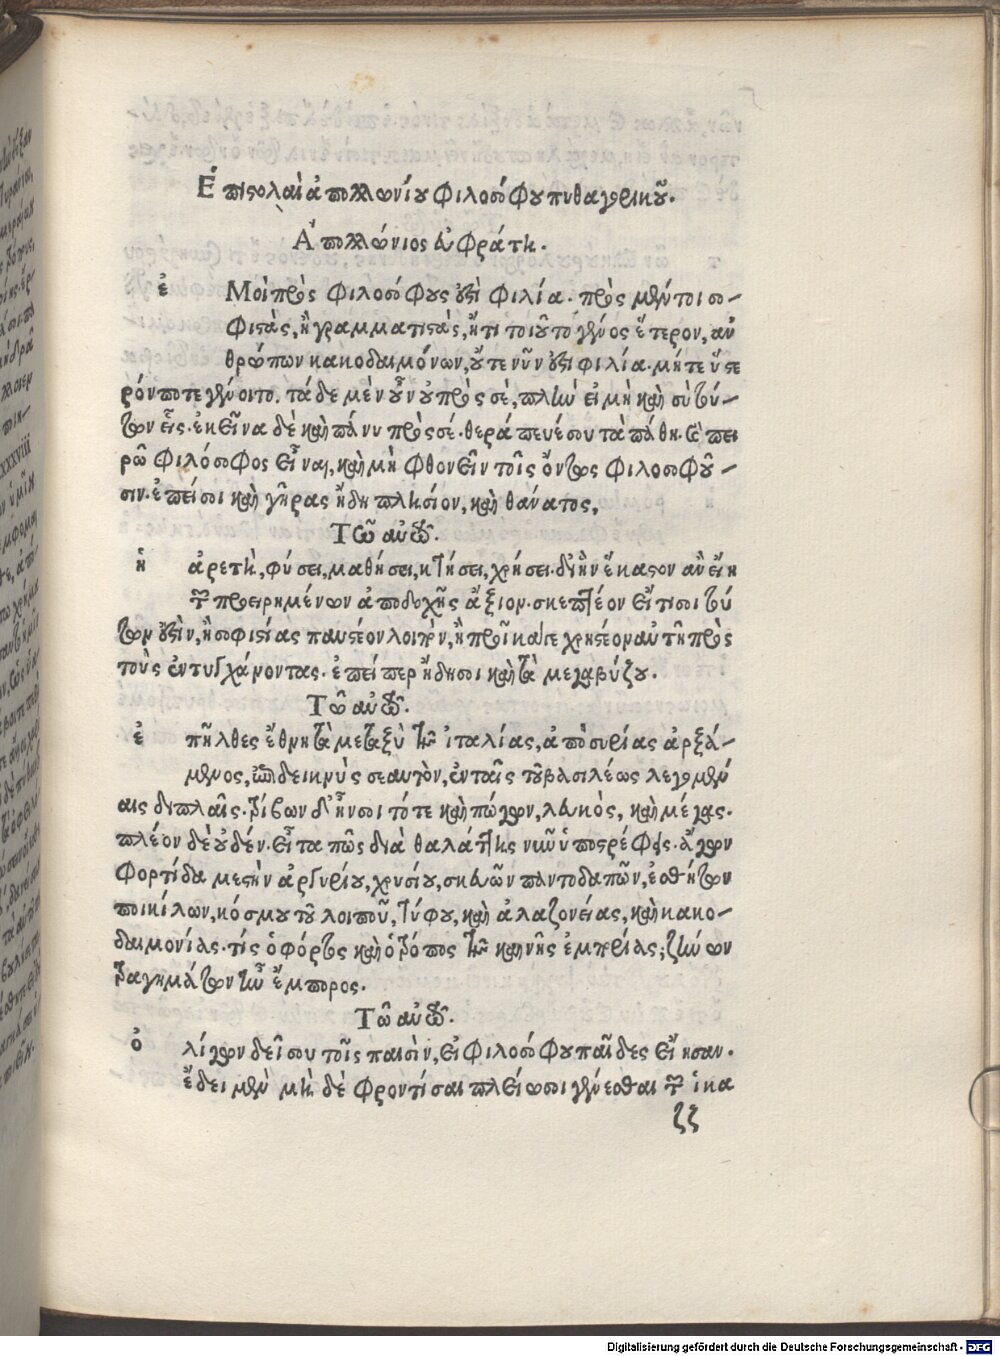 Ἐπιστολαὶ ἀπολλωνίου φιλοσόφου πυθαγορικοῦ.
Ἀπολλώνιος εὐφράτῃ.
ἐ Μοὶ πρὸς φιλοσόφους ἐστὶ φιλία. πρὸς μέντοι σο-
φιστὰς, ἢ γραμματιστὰς, ἤ τι τοιοῦτο γένος ἕτερον, ἀν
θρώπων κακοδαιμόνων, οὔτε νῦν ἐστι φιλία. μήτε ὕστε
ρόν ποτε γένοιτο. τάδε μὲν οὖν οὐ πρὸς σὲ, πλὴν εἰ μὴ καὶ σὺ τού-
των εἷς. ἐκεῖνα δὲ καὶ πάνυ πρὸς σέ. θεράπευέ σου τὰ πάθη. καὶ πει
ρῶ φιλόσοφος εἶναι, καὶ μὴ φθονεῖν τοῖς ὄντως φιλοσοφοῦ-
σιν. ἐπεί σοι καὶ γῆρας ἤδη πλησίον, καὶ θάνατος,
Τῶ αὐτῶ.
ἡ ἀρετὴ, φύσει, μαθήσει, κτήσει, χρήσει. δι' ἣν ἕκαστον ἂν εἴη
τῶν προειρημένων ἀποδοχῆς ἄξιον. σκεπτέον εἴ τί σοι τού
των ἐστὶν, ἢ σοφιστείας παυστέον λοιπὸν, ἢ προῖκά γε χρηστέον αὐτῇ πρὸς
τοὺς ἐντυγχάνοντας. ἐπείπερ ἤδη σοι καὶ τὰ μεγαβύζου.
Τῶ αὐτῶ.
ἐ πῆλθες ἔθνη τὰ μεταξὺ τῆς ἰταλίας, ἀπὸ συρίας ἀρξά-
μενος, ἐπιδεικνὺς σεαυτὸν, ἐν ταῖς τοῦ βασιλέως λεγομέν
αις διπλαῖς. τρίβων δ' ἦν σοι τότε καὶ πώγων, λευκὸς, καὶ μέγας.
πλέον δὲ οὐδέν. εἶτα πῶς διὰ θαλάττης νῦν ὑποστρέφεις. ἄγων
φορτίδα μεστὴν ἀργυρίου, χρυσίου, σκευῶν παντοδαπῶν, ἐσθήτων
ποικίλων, κόσμου τοῦ λοιποῦ, τύφου, καὶ ἀλαζονείας, καὶ κακο-
δαιμονίας. τίς ὁ φόρτος καὶ ὁ τρόπος τῆς καινῆς ἐμπορίας; ζήνων
τραγημάτων ἦν ἔμπορος.
Τῶ αὐτῶ.
ὀ λίγων δεῖ σου τοῖς παισὶν, εἰ φιλοσόφου παῖδες εἴησαν.
ἔδει μὲν μὴ δὲ φροντίσαι πλείω σοι γενέσθαι τῶν ἱκα
ζζ
Digitalisierung gefördert durch die Deutsche Forschungsgemeinschaft - DFG